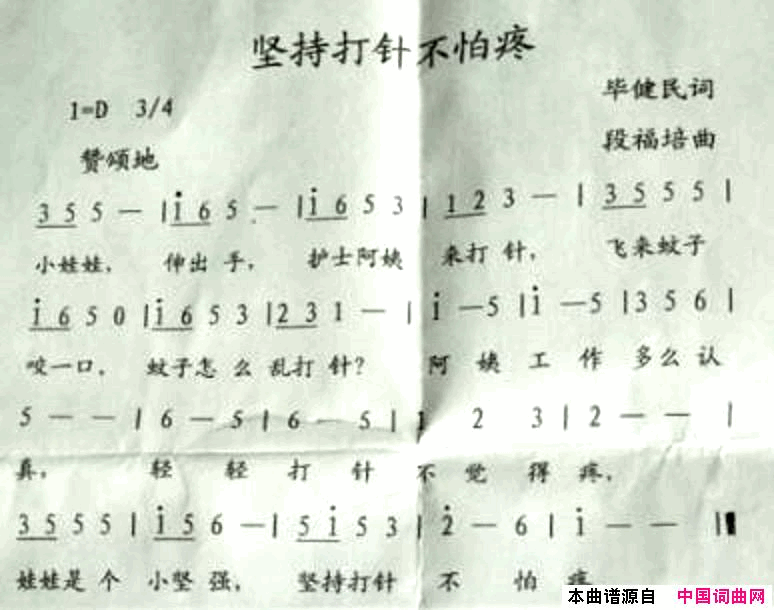 坚持打针不怕疼
毕健民词
1=D 3/4
段福培曲
赞颂地
3 5 5 — | i 6 5 — | i 6 5 3 | 1 2 3 — | 3 5 5 5 |
小娃娃, 伸出手, 护士阿姨 来打针, 飞来蚊子
i 6 5 0 | i 6 5 3 | 2 3 1 — | i — 5 | i — 5 | 3 5 6 |
咬一口, 蚊子怎么乱打针? 阿姨工作多么认
5 — — | 6 — 5 | 6 — 5 | 1 2 3 | 2 — — |
真, 轻轻打针不觉得疼,
3 5 5 5 | i 5 6 — | 5 i 5 3 | 2 — 6 | i — — ‖
娃娃是个小坚强, 坚持打针不怕疼
本曲谱源自 中国词曲网